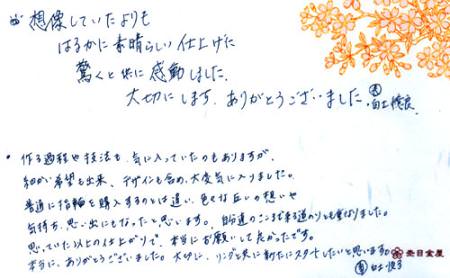 想像していたよりも
はるかに素晴らしい仕上げに
驚くと共に感動しました。
大切にします。ありがとうございました。
・作る過程や技法も、気に入っていたのもありますが、
細かい希望も出来、デザインも含め、大変気に入りました。
普通に指輪を購入するのとは違い、色々な互いの想いや
気持ち、思い出にもなったと思います。自分達のここまで来る道のりとも重なりました。
思っていた以上の仕上がりで、本当にお願いして良かったです。
本当に、ありがとうございました。大切に、リングと共に新たにスタートしたいと思います。
杢目金屋